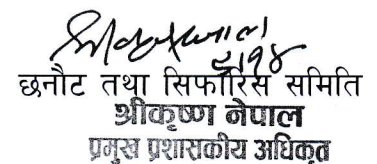 २१४
छनौट तथा सिफारिस समिति
श्रीकृष्ण नेपाल
प्रमुख प्रशासकीय अधिकृत